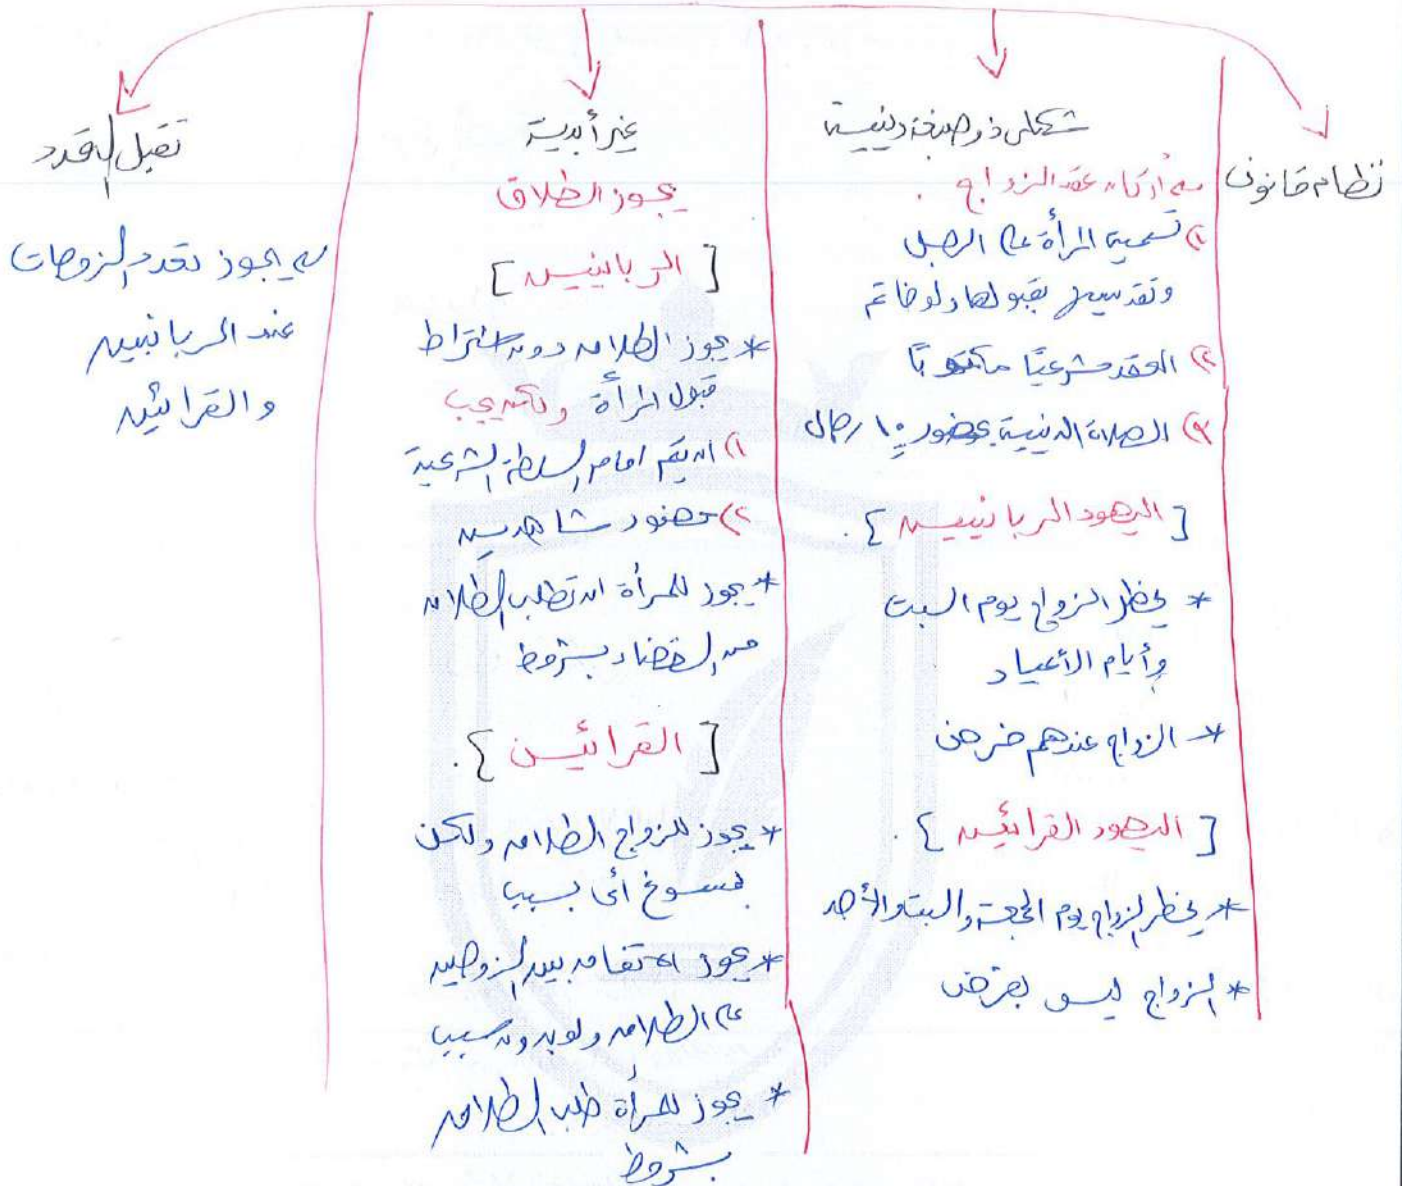 نظام قانونى
شكلى ذو صبغة دينية
من أركان عقد الزواج .
١) تسمية المرأة على الرجل
وتقديسها بقبولها ولو خاتم
٢) العقد شرعيًا مكتوبًا
٣) الصلاة الدينية بحضور ١٠ رجال
[ اليهود الربانيين ] .
* يحظر الزواج يوم السبت
وأيام الأعياد
* الزواج عندهم فرض
[ اليهود القرائين ] .
* يحظر الزواج يوم الجمعة والسبت والأحد
* الزواج ليس بفرض
غير أبدية
يجوز الطلاق
[ الربانيين ]
* يجوز الطلاق دون اشتراط
قبول المرأة ولكن يجب
١) ان يتم امام السلطة الشرعية
٢) حضور شاهدين
* يجوز للمرأة ان تطلب الطلاق
من القضاء بشروط
[ القرائين ] .
* يجوز للزواج الطلاق ولكن
بمسوغ أى بسبب
* يجوز الاتفاق بين الزوجين
على الطلاق ولو بدون سبب
* يجوز للمرأة طلب الطلاق
بشروط
تقبل التعدد
يجوز تعدد الزوجات
عند الربانيين
والقرائين